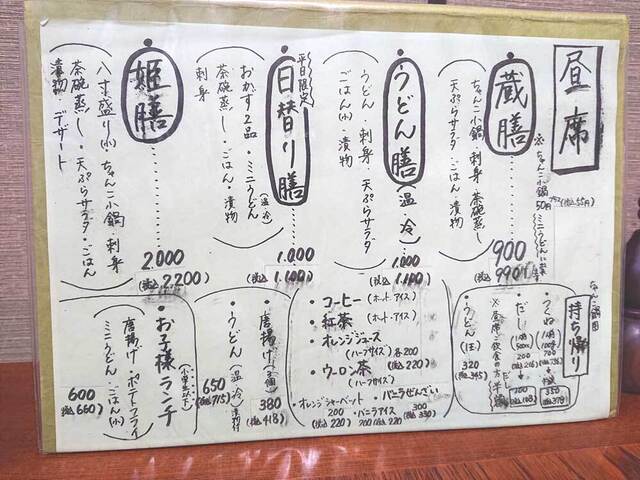 昼席
蔵膳
900
(税込990)
ちゃんこ小鍋・刺身・茶碗蒸し
天ぷらサラダ・ごはん・漬物
うどん膳(温・冷)
1.000
(税込1.100)
うどん・刺身・天ぷらサラダ
ごはん(小)・漬物
平日限定
日替り膳
1.000
(税込1.100)
おかず2品・ミニうどん(温・冷)
茶碗蒸し・ごはん・漬物
刺身
姫膳
2.000
(税込2.200)
八寸盛り(小)・ちゃんこ小鍋・刺身
茶碗蒸し・天ぷらサラダ・ごはん
漬物・デザート
ちゃんこ鍋用
持ち帰り
・つくね
・だし
・うどん(1玉)
320
・コーヒー(ホット・アイス)
・紅茶(ホット・アイス)
・オレンジジュース
(ハーフサイズ)各200
・ウーロン茶(税込220)
(ハーフサイズ)
・オレンジシャーベット
200
(税込220)
・バニラアイス
200
・バニラぜんざい
300
(税込330)
・唐揚げ(3個)
380
(税込418)
・うどん(温・冷)漬物付
650
(税込715)
・お子様ランチ
(小学生以下)
唐揚げ・ポテトフライ
ミニうどん・ごはん(小)
600
(税込660)